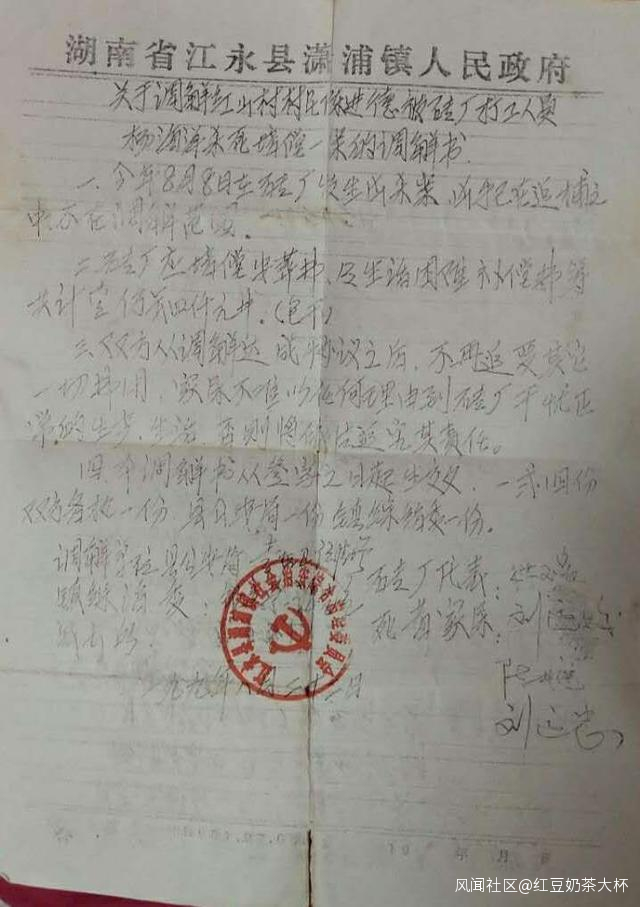 湖南省江永县潇浦镇人民政府
关于调解红山村村民陈进德被硅厂打工人员
杨海洋杀死赔偿一案的调解书
一、今年8月8日在硅厂发生凶杀案,凶手已在追捕之
中不在调解范围。
二、硅厂应赔偿安葬费、及生活困难补偿费等
共计壹仟
三、双方人调解达成协议之后,不再追要其它
一切费用,家属不准以任何理由到硅厂干忧正
常的生产、生活,否则将依法追究其责任。
四、本调解书从签字之日起生效,一式四份
双方各执一份,一份镇综治委一份。
调解单位县公安局
镇综治委:
硅厂代表:
死者家属:刘运
一九九九年八月二十二日
刘运
年 月 日
风闻社区@红豆奶茶大杯